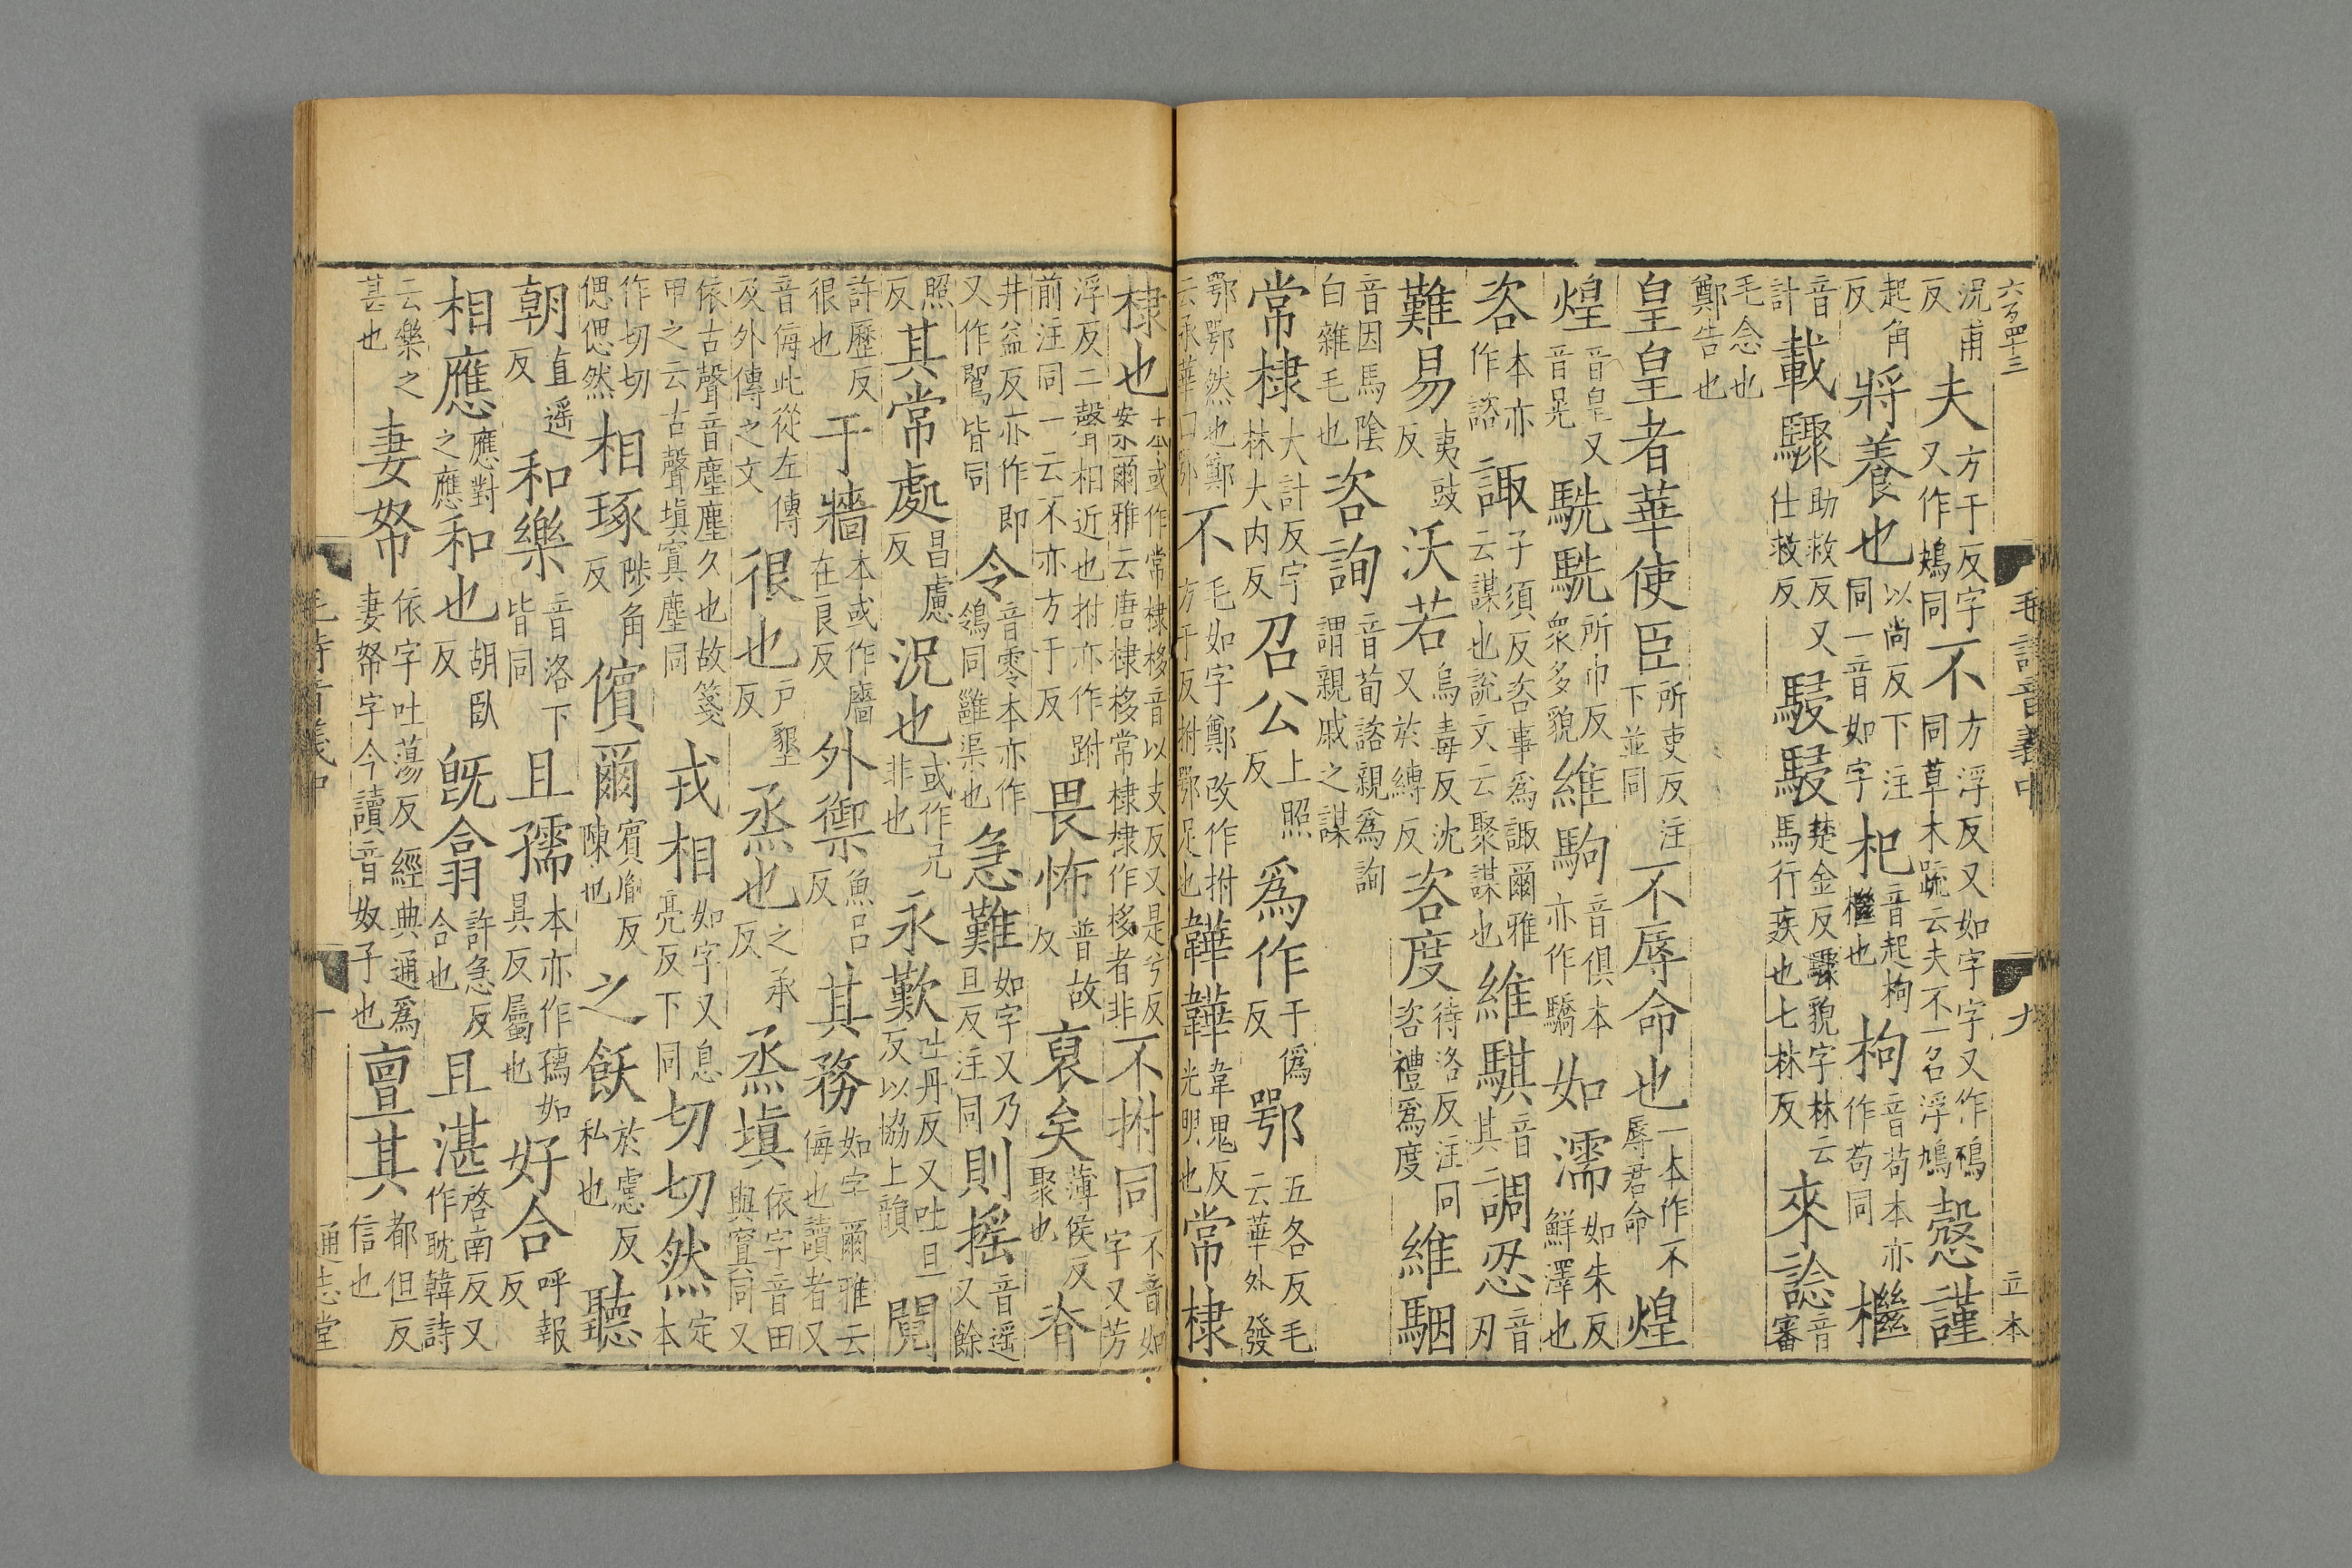 六百四十三
毛詩音義中
九
立本
況甫反夫方于反字又作鳺同不方浮反又如字字又作鳩同草木疏云夫不一名浮鳩慤謹
起角反將養也以尚反下注同一音如字杞音起枸檵也枸音苟本亦作苟同檵
音計載驟助救反又仕救反駸駸楚金反驟貌字林云馬行疾也七林反來諗音審
毛念也鄭告也
皇皇者華使臣所吏反注下並同不辱命也一本作不辱君命煌
煌音皇又音晃駪駪所巾反衆多貌維駒音俱本亦作驕如濡如朱反鮮澤也
咨本亦作諮諏子須反咨事爲諏爾雅云謀也說文云聚謀也維騏音其二調忍音刃
難易夷豉反沃若烏毒反沈又於縛反咨度待洛反注同咨禮爲度維駰
音因馬陰白雜毛也咨詢音荀諮親爲詢謂親戚之謀
常棣大計反字林大内反召公上照反爲作于僞反鄂五各反毛云華外發
鄂鄂然也鄭云承華曰鄂不毛如字鄭改作拊方于反拊鄂足也韡韡韋鬼反光明也常棣
棣也本或作常棣移音以支反又是兮反爾雅云唐棣移常棣棣作移者非不拊同不音如字又芳
浮反二聲相近也拊亦作跗前注同一云不亦方于反畏怖普故反裒矣薄侯反聚也脊
井益反亦作即又作鶺皆同令音零本亦作鴒同雝渠也急難如字又乃旦反注同則搖音遥又餘
照反其常處昌慮反況也或作兄非也永歎吐丹反又吐旦反以協上韻鬩
許歷反很也于牆本或作廧在良反外禦魚呂反其務如字爾雅云侮也讀者又
音侮此從左傳及外傳之文很也户墾反烝也之承反烝塡依字音田與寘同又
依古聲音塵塵久也故箋申之云古聲塡寘塵同戎相如字又息亮反下同切切然定本
作切切偲偲然相琢陟角反儐爾賓胤反陳也之飫於慮反私也聽
朝直遥反和樂音洛下皆同且孺本亦作㺦如具反屬也好合呼報反
相應應對之應和也胡臥反既翕許急反合也且湛啓南反又作耽韓詩
云樂之甚也妻帑依字吐蕩反經典通爲妻帑字今讀音奴子也亶其都但反信也
毛詩音義中
通志堂